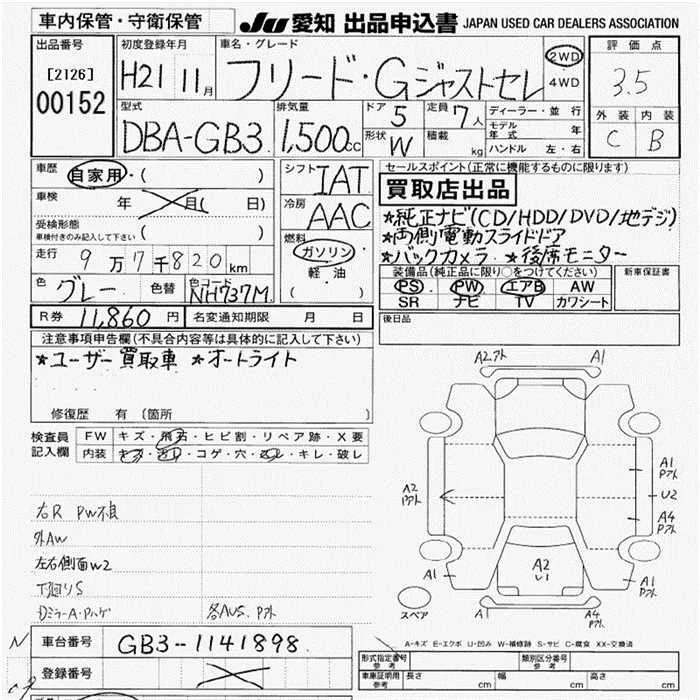 車内保管・守衛保管
JU 愛知 出品申込書 JAPAN USED CAR DEALERS ASSOCIATION
出品番号
[2126]
00152
初度登録年月
H21 11月
車名・グレード
フリード・Gジャストセレ
2WD
4WD
評価点
3.5
外装 内装
C B
型式
DBA-GB3
排気量
1,500cc
ドア 5
形状 W
定員 7人
積載 kg
ディーラー・並行
モデル年式 年
ハンドル 左・右
車歴 自家用・( )
車検 年 月( 日)
受検形態
車検付きのみ記入して下さい ( )
走行 9万7千820km
色 グレー 色替 色コード NH737M
シフト IAT
冷房 AAC
燃料
ガソリン
軽油
( )
セールスポイント(正常に機能するものに限ります)
買取店出品
★純正ナビ(CD/HDD/DVD/地デジ)
★両側電動スライドドア
★バックカメラ ★後席モニター
装備品(純正品に限り○をつけてください)
PS PW エアB AW
SR ナビ TV カワシート
新車保証書
R券 11,860円 名変通知期限 月 日
後日品
注意事項申告欄(不具合内容等は具体的に記入して下さい)
★ユーザー買取車 ★オートライト
修復歴 有(箇所 )
検査員記入欄
FW キズ・飛石・ヒビ割・リペア跡・X要
内装 キズ・汚レ・コゲ・穴・返レ・キレ・破レ
右R PW不良
外AW
左右側面W2
下廻りS
各AUS. Pアト
A2アト A1
A1 Pアト
A2 Pアト
U2
A4 Pアト
A2
U1
A1
A1 Pアト
A4 Pアト
スペア
A-キズ E-エクボ U-凹み W-補修跡 S-サビ C-腐食 XX-交換済
N
車台番号 GB3-1141898
登録番号
形式指定番号 参考
類別区分番号 参考
車庫証明 参考 長さ cm 幅 cm 高さ cm